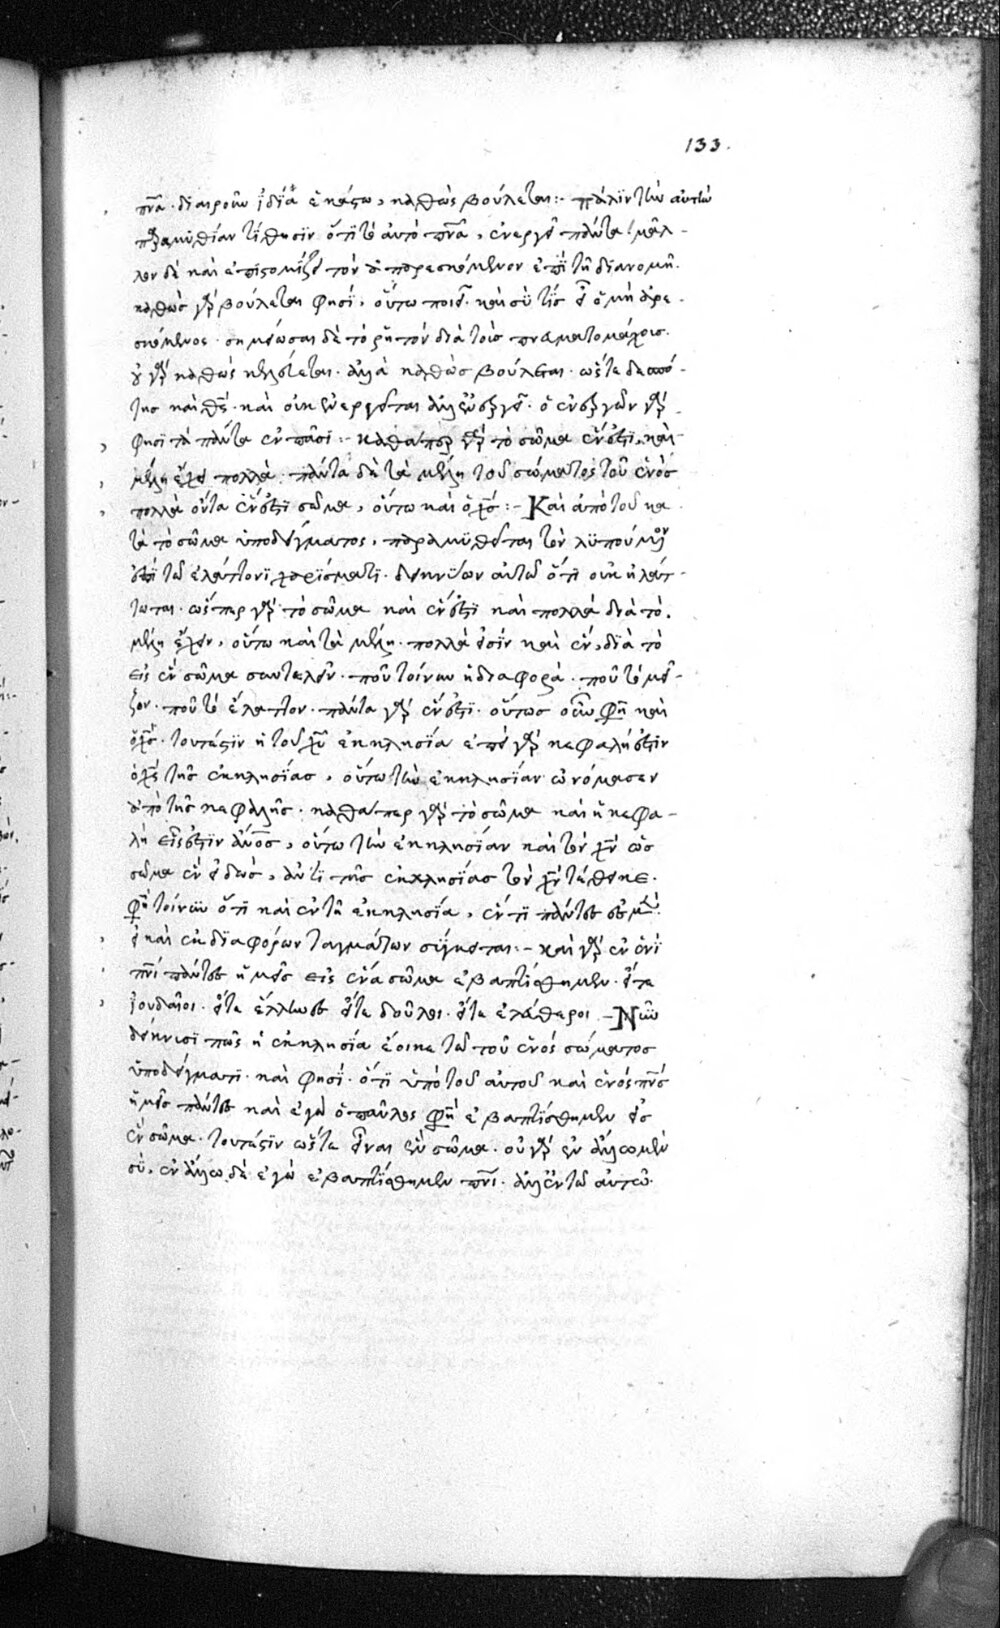 133.
πνᾶ· διαιροῦν ἰδίᾳ ἑκάστω, καθὼς βούλεται:- πάλιν τὴν αὐτὴν
παραμυθίαν τίθησιν ὅτι τὸ αὐτὸ πνᾶ, ἐνεργεῖ πάντα· μᾶλ-
λον δὲ καὶ ἐπιστομίζει τὸν ἀπαρεσκόμενον ἐπὶ τῆ διανομῆ.
καθὼς γὰρ βούλεται φησί, οὕτω ποιεῖ· καὶ σὺ τίς εἶ ὁ μὴ ἀρε-
σκόμενος· σημείωσαι δὲ τὸ ῥητὸν διὰ τοὺς πνευματομάχους.
οὐ γὰρ καθὼς κελεύεται· ἀλλὰ καθὼς βούλεται· ὥστε δεσπό-
της καὶ θς· καὶ οὐκ ἐνεργεῖται ἀλλ' ἐνεργεῖ· ὁ ἐνεργῶν γάρ
φησι τὰ πάντα ἐν πᾶσι:- καθάπερ γὰρ τὸ σῶμα ἕν ἐστι, καὶ
μέλη ἔχει πολλὰ· πάντα δὲ τὰ μέλη τοῦ σώματος τοῦ ἑνὸς
πολλὰ ὄντα ἕν ἐστι σῶμα, οὕτω καὶ ὁ χς:- Καὶ ἀπὸ τοῦ κα
τὰ τὸ σῶμα ὑποδείγματος, παραμυθεῖται τὸν λυπούμενον
ἐπὶ τῶ ἐλάττονι χαρίσματι· δεικνύων αὐτῶ ὅτι οὐκ ἠλάτ-
τωται· ὥσπερ γὰρ τὸ σῶμα καὶ ἕν ἐστι καὶ πολλὰ διὰ τὸ
μέλη ἔχειν, οὕτω καὶ τὰ μέλη· πολλὰ εἰσὶν καὶ ἕν, διὰ τὸ
εἰς ἓν σῶμα συντελεῖν· ποῦ τοίνυν ἡ διαφορὰ· ποῦ τὸ μεῖ-
ζον· ποῦ τὸ ἔλαττον· πάντα γὰρ ἕν ἐστι· οὕτως οὖν φη καὶ
ὁ χς· τουτέστιν ἡ τοῦ χυ ἐκκλησία ἐπεὶ γὰρ κεφαλή ἐστιν
ὁ χς τῆς ἐκκλησίας, οὕτω τὴν ἐκκλησίαν ὠνόμασεν
ἀπὸ τῆς κεφαλῆς· καθάπερ γὰρ τὸ σῶμα καὶ ἡ κεφα-
λὴ εἷς ἐστιν ἄνος, οὕτω τὴν ἐκκλησίαν καὶ τὸν χν ὡς
σῶμα ἓν εἰδὼς, ἀντὶ τῆς ἐκκλησίας τὸν χν τέθεικε.
φη τοίνυν ὅτι καὶ ἐν τῆ ἐκκλησία, ἕν τι πάντες ἐσμέν.
εἰ καὶ ἐκ διαφόρων ταγμάτων σύγκειται:- καὶ γὰρ ἐν ἑνὶ
πνι πάντες ἡμεῖς εἰς ἕνα σῶμα ἐβαπτίσθημεν· εἴτε
ἰουδαῖοι· εἴτε ἕλληνες εἴτε δοῦλοι· εἴτε ἐλεύθεροι:- Νῦν
δείκνυσι πῶς ἡ ἐκκλησία ἔοικε τῶ τοῦ ἑνὸς σώματος
ὑποδείγματι· καὶ φησὶ· ὅτι ὑπὸ τοῦ αὐτοῦ καὶ ἑνὸς πνς
ἡμεῖς πάντες καὶ ἐγὼ ὁ παῦλος φη ἐβαπτίσθημεν εἰς
ἓν σῶμα· τουτέστιν ὥστε εἶναι ἓν σῶμα· οὐ γὰρ ἐν ἄλλω μὲν
σὺ, ἐν ἄλλω δὲ ἐγὼ ἐβαπτίσθημεν πνι· ἀλλ' ἐν τῶ αὐτῶ·